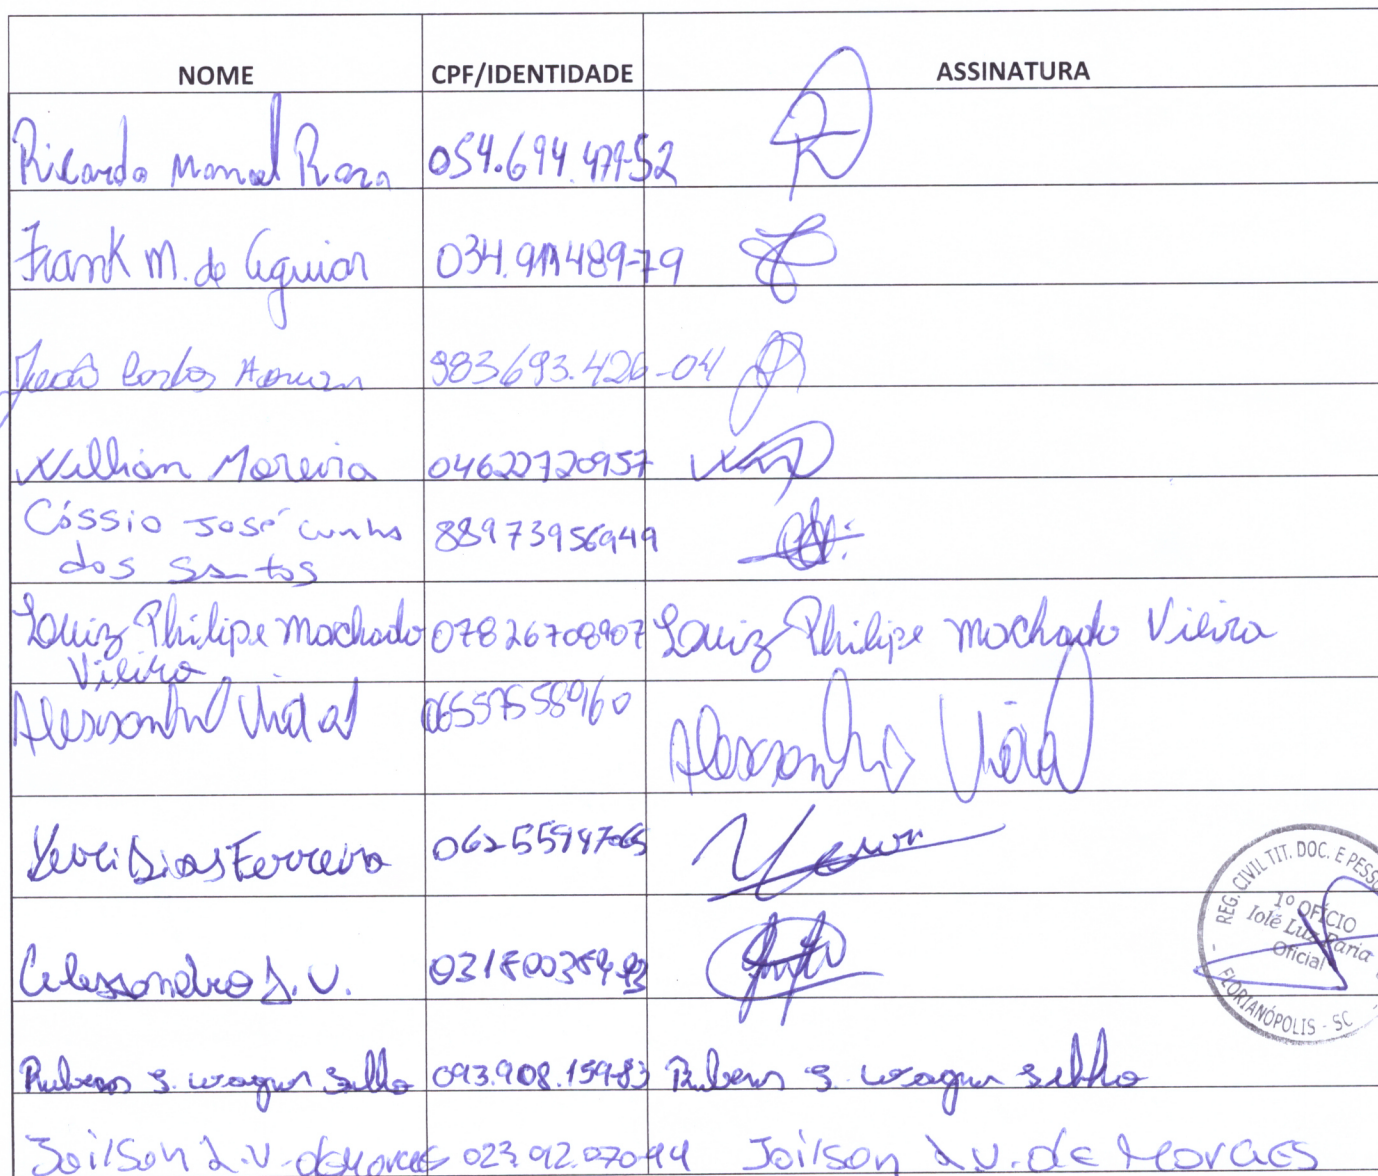 NOME CPF/IDENTIDADE ASSINATURA
Ricardo Manoel 054.694.479-52
Frank M. de Aguiar 034.911489-79
Carlos 983693.426-04
Willian Moreira 04622720957
Cássio José Cunha
dos Santos 88973956949
Luiz Philipe Machado 07826708907 Luiz Philipe Machado Vieira
Vieira
Alessandro Vidal 06557558960 Alessandro Vidal
Dias Ferreira
Alessandro S. V.
Rubens S. Wagner 093.908.159-83 Rubens S. Wagner
Joilson L.V. de Moraes 023.92.070-44 Joilson L.V. de Moraes
REG. CIVIL TIT. DOC. E
1º OFÍCIO
Iolé Luz Faria
Oficial
FLORIANÓPOLIS - SC